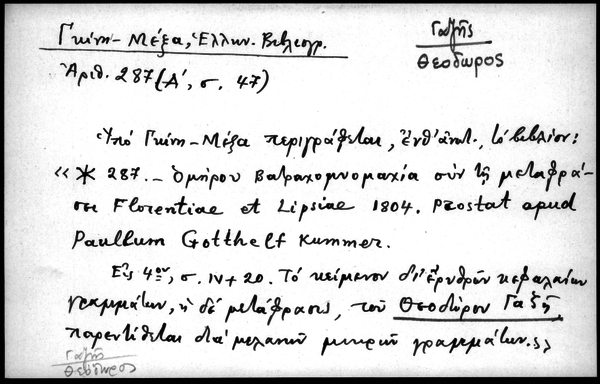 Γκίνη-Μέξα, Ἑλλην. Βιβλιογρ.
Γαζῆς
Θεόδωρος
Ἀριθ. 287 (Α΄, σ. 47)
Ὑπό Γκίνη-Μέξα περιγράφεται, ἐνθ' ἀνωτ., τό βιβλίον:
«✶ 287. – Ὁμήρου Βατραχομυομαχία σύν τῇ μεταφρά-
σει Florentiae et Lipsiae 1804. Prostat apud
Paullum Gotthelf Kummer.
Εἰς 4ον, σ. IV + 20. Τό κείμενον δι' ἐρυθρῶν κεφαλαίων
γραμμάτων, ἡ δέ μετάφρασις, τοῦ Θεοδώρου Γαζῆ
παρεντίθεται διά μελανῶν μικρῶν γραμμάτων.»
Γαζῆς
Θεόδωρος